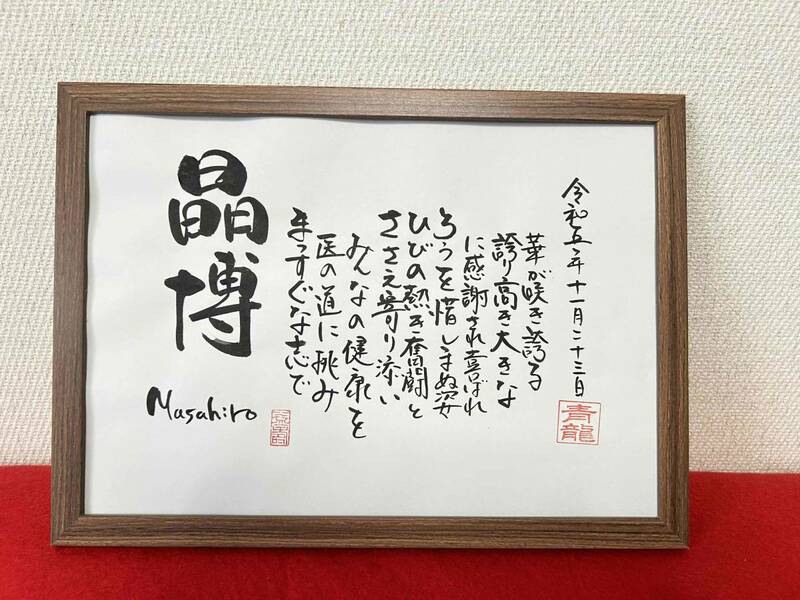 晶博
Masahiro
まっすぐな志で
医の道に挑み
みんなの健康を
ささえ寄り添い
ひびの熱き奮闘と
ろうを惜しまぬ姿
に感謝され喜ばれ
誇り高き大きな
華が咲き誇る
令和五年十一月二十三日
青龍